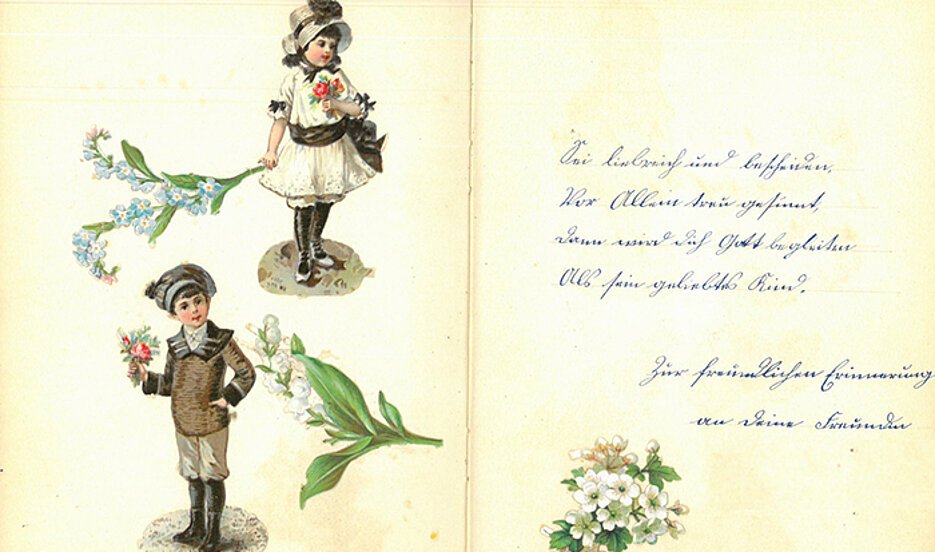 Sei liebreich und bescheiden,
Vor Allem treu gesinnt,
Dann wird dich Gott begleiten
Als sein geliebtes Kind.
Zur freundlichen Erinnerung
an deine Freundin